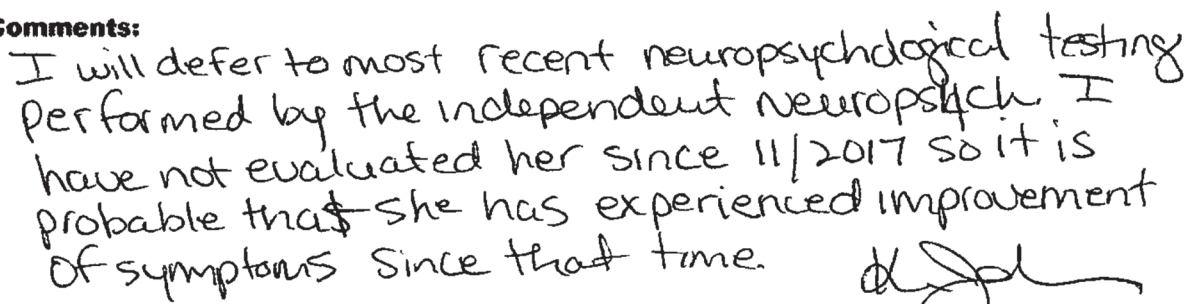 Comments:
I will defer to most recent neuropsychological testing
performed by the independent Neuropsych. I
have not evaluated her since 11/2017 so it is
probable that she has experienced improvement
of symptoms since that time.